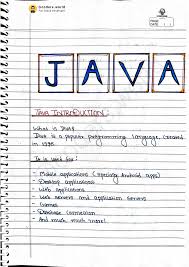 JAVA
JAVA INTRODUCTION :
What is Java?
Java is a popular programming language, created
in 1995.
It is used for :
Mobile applications (specially Android apps)
Desktop applications
Web applications
Web servers and application servers
Games
Database connection
And much, much more!